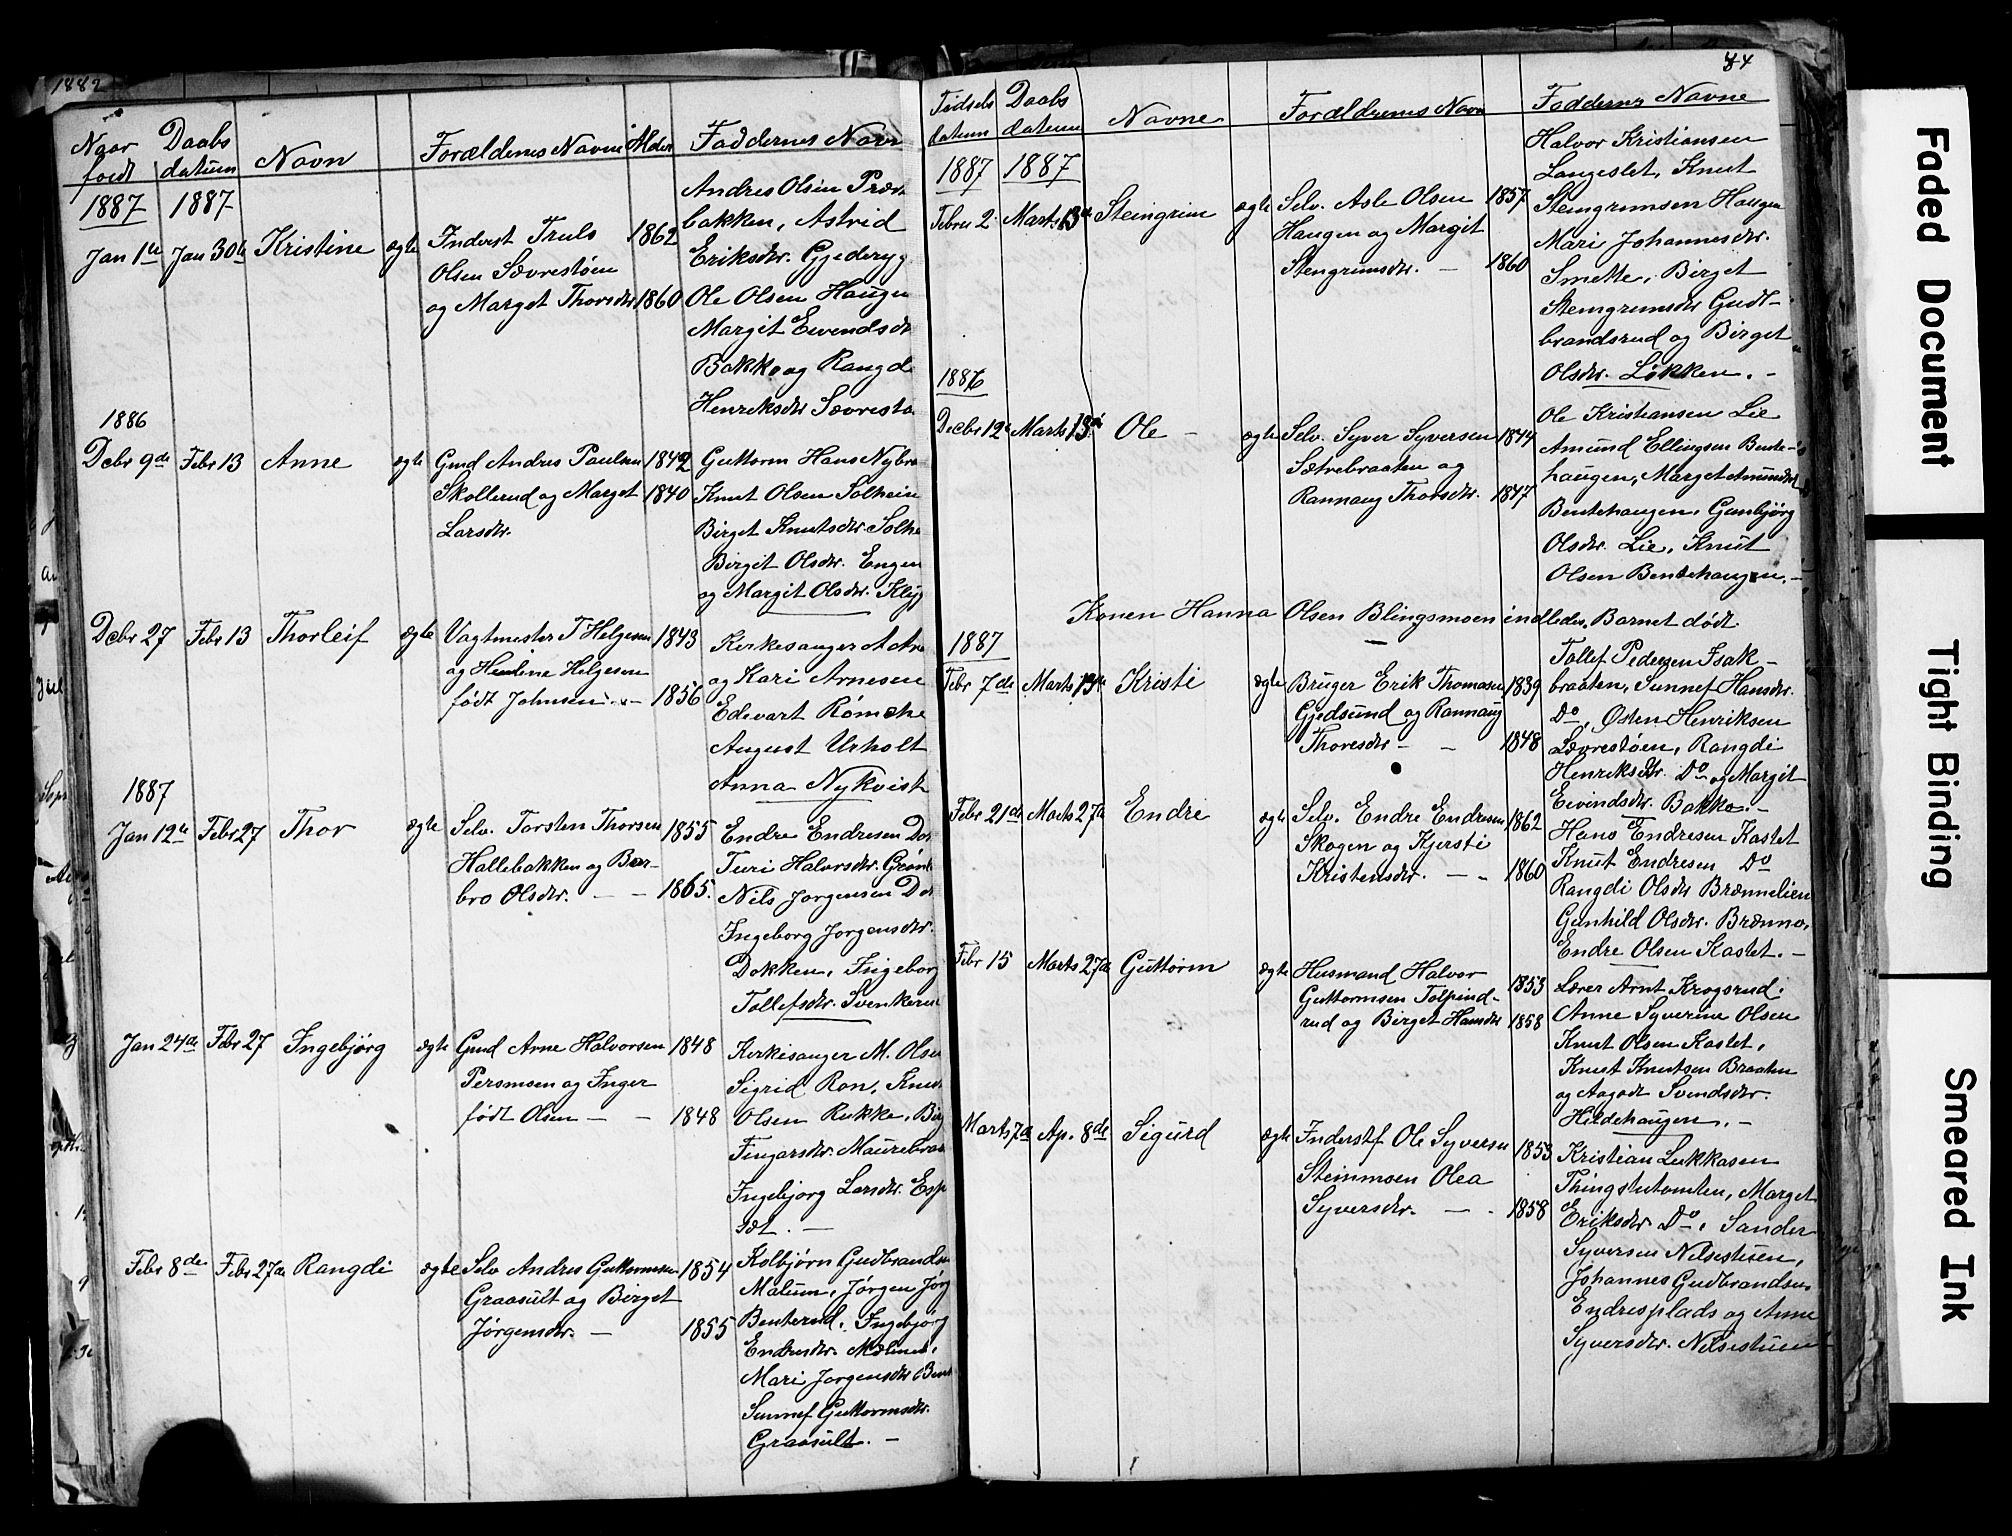 1882
Naar født
Daabs datum
Navn
Forældenes Navne
Alder
Faddernes Navn
1887
1887
Jan 1te
Jan 30te
Kristine
ægte
Inderst Truls
Olsen Sævrestøen
og Marget Thorsdtr
1862
1860
Andres Olsen
bakken, Astrid
Eriksdtr. Gjederyg
Ole Olsen Haugen
Margit Eivendsdt
Bakke og Rangd
Henriksdtr Sævresto
1886
Debr 9de
Febr 13
Anne
ægte
Gmd Andres Paulsen
Skollerud og Marget
Larsdtr.
1842
1840
Guttorm Hans Nybra
Knut Olsen Solheim
Birget Knutsdtr. Solhe
Birgit Olsdtr. Engen
og Margit Olsdtr. Klyp
Debr 27
Febr 13
Thorleif
ægte
Vagtmester T Helgesen
og Heline Helgesen
født Johnsen
1843
1856
Kerkesanger A Arn
og Kari Arnesen
Edevart Rømcke
August Urholt
Anna Nykvist
1887
Jan 12te
Febr 27
Thor
ægte
Selv. Torsten Thorsen
Hallebakken og Bar-
bro Olsdtr.
1855
1865.
Endre Endresen Dok
Turi Halvorsdtr. Grønl
Nils Jorgensen Dok
Ingeborg Jorgensdtr.
Dokken, Ingeborg
Tollefsdtr. Svenkerud
Jan 24de
Febr 27
Ingebjørg
ægte
Gmd Arne Halvorsen
Persmoen og Inger
født Olsen
1848
1848
Kerkesanger M. Olsen
Sigrid Ron, Knut
Olsen Rukke, Bir
Fingarsdtr. Maurebraa
Ingebjorg Larsdtr. Esp
set.
Febr 8de
Febr 27de
Rangdi
ægte
Selv Andres Guttormsen
Graasult og Birget
Jørgensdtr.
1854
1855
Kolbjørn Gudbrandsen
Malum, Jørgen Jørg
Benterud, Ingebjorg
Endresdtr. Mælum,
Mari Jorgensdtr Bent
Sunnef Guttormsdtr.
Graasult.
84
Fødsels datum
Daabs datum
Navne
Forældrenes Navn
Faddernes Navne
1887
1887
Febru 2
Marts 13de
Steingrim
ægte
Selv. Asle Olsen
Haugen og Margit
Stengrimsdtr.
1857
1860
Halvor Kristiansen
Langeslet, Knut
Stengrimsen Haugen
Mari Johannesdtr.
Smette, Birget
Stengrimsdtr Gudt-
brandsrud og Birget
Olsdtr. Løkken.
1886
Decbr 12te
Marts 13de
Ole
ægte
Selv. Syver Syversen
Sætrebraaten og
Rannaug Thorsdtr.
1844
1847
Ole Kristiansen Lie
Amund Ellingsen Bente-
haugen, Marget Amundsdt
Bentehaugen, Gunbjørg
Olsdtr. Lie, Knut
Olsen Bentehaugen.
Konen Hanna Olsen Blingsmoen indledes, Barnet dødt.
1887
Febr 7de
Marts 13de
Kristi
ægte
Bruger Erik Thomasen
Gjedsund og Rannaug
Thoresdtr
1839
1848
Tollef Pedersen Isak-
braaten, Sunnef Hansdtr.
Do, Østen Henriksen
Sævrestøen, Rangdi
Henriksdtr. Do og Margit
Eivindsdtr. Bakke.
Febr 21de
Marts 27de
Endre
ægte
Selv. Endre Endresen
Skogen og Kjersti
Kristensdtr.
1862
1860
Hans Endresen Kastet
Knut Endresen Do
Rangdi Olsdtr Brænnelien
Gunhild Olsdtr. Brænna,
Endre Olsen Kastet.
Febr 15
Marts 27de
Guttorm
ægte
Husmand Halvor
Guttormsen Tolpind-
rud og Birget Hansdtr
1853
1858
Lærer Arnt Krogsrud,
Anne Syverine Olsen
Knut Olsen Kastet,
Knut Knutsen Braaten
og Aagodt Svendsdtr.
Hildehaugen.
Marts 7de
Ap. 8de
Sigurd
ægte
Inderstf Ole Syversen
Steinmoen Olea
Syversdtr.
1853
1858
Kristian Lukkasen
Thingstutomten, Marget
Eriksdtr Do, Sander
Syversen Nilsestuen,
Johannes Gudbrandsen
Endresplads og Anne
Syversdtr. Nilsestuen
Faded Document
Tight Binding
Smeared Ink